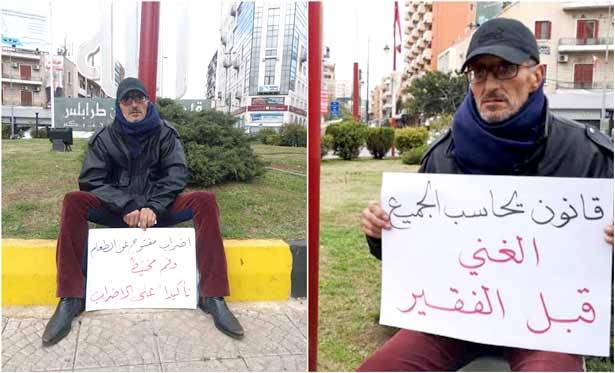 طرابلس
اضراب مفتوح عن الطعام
وفم مخيط
تأكيداً على الاضراب
قانون يحاسب الجميع
الغني
قبل الفقير